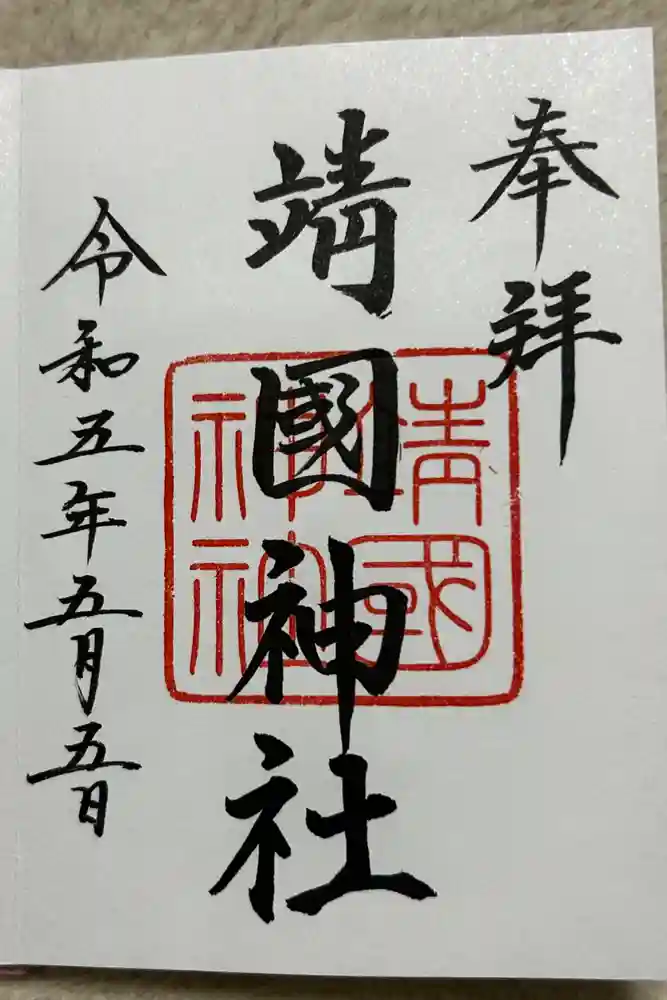 奉拝
靖國神社
令和五年五月五日
靖國
神社